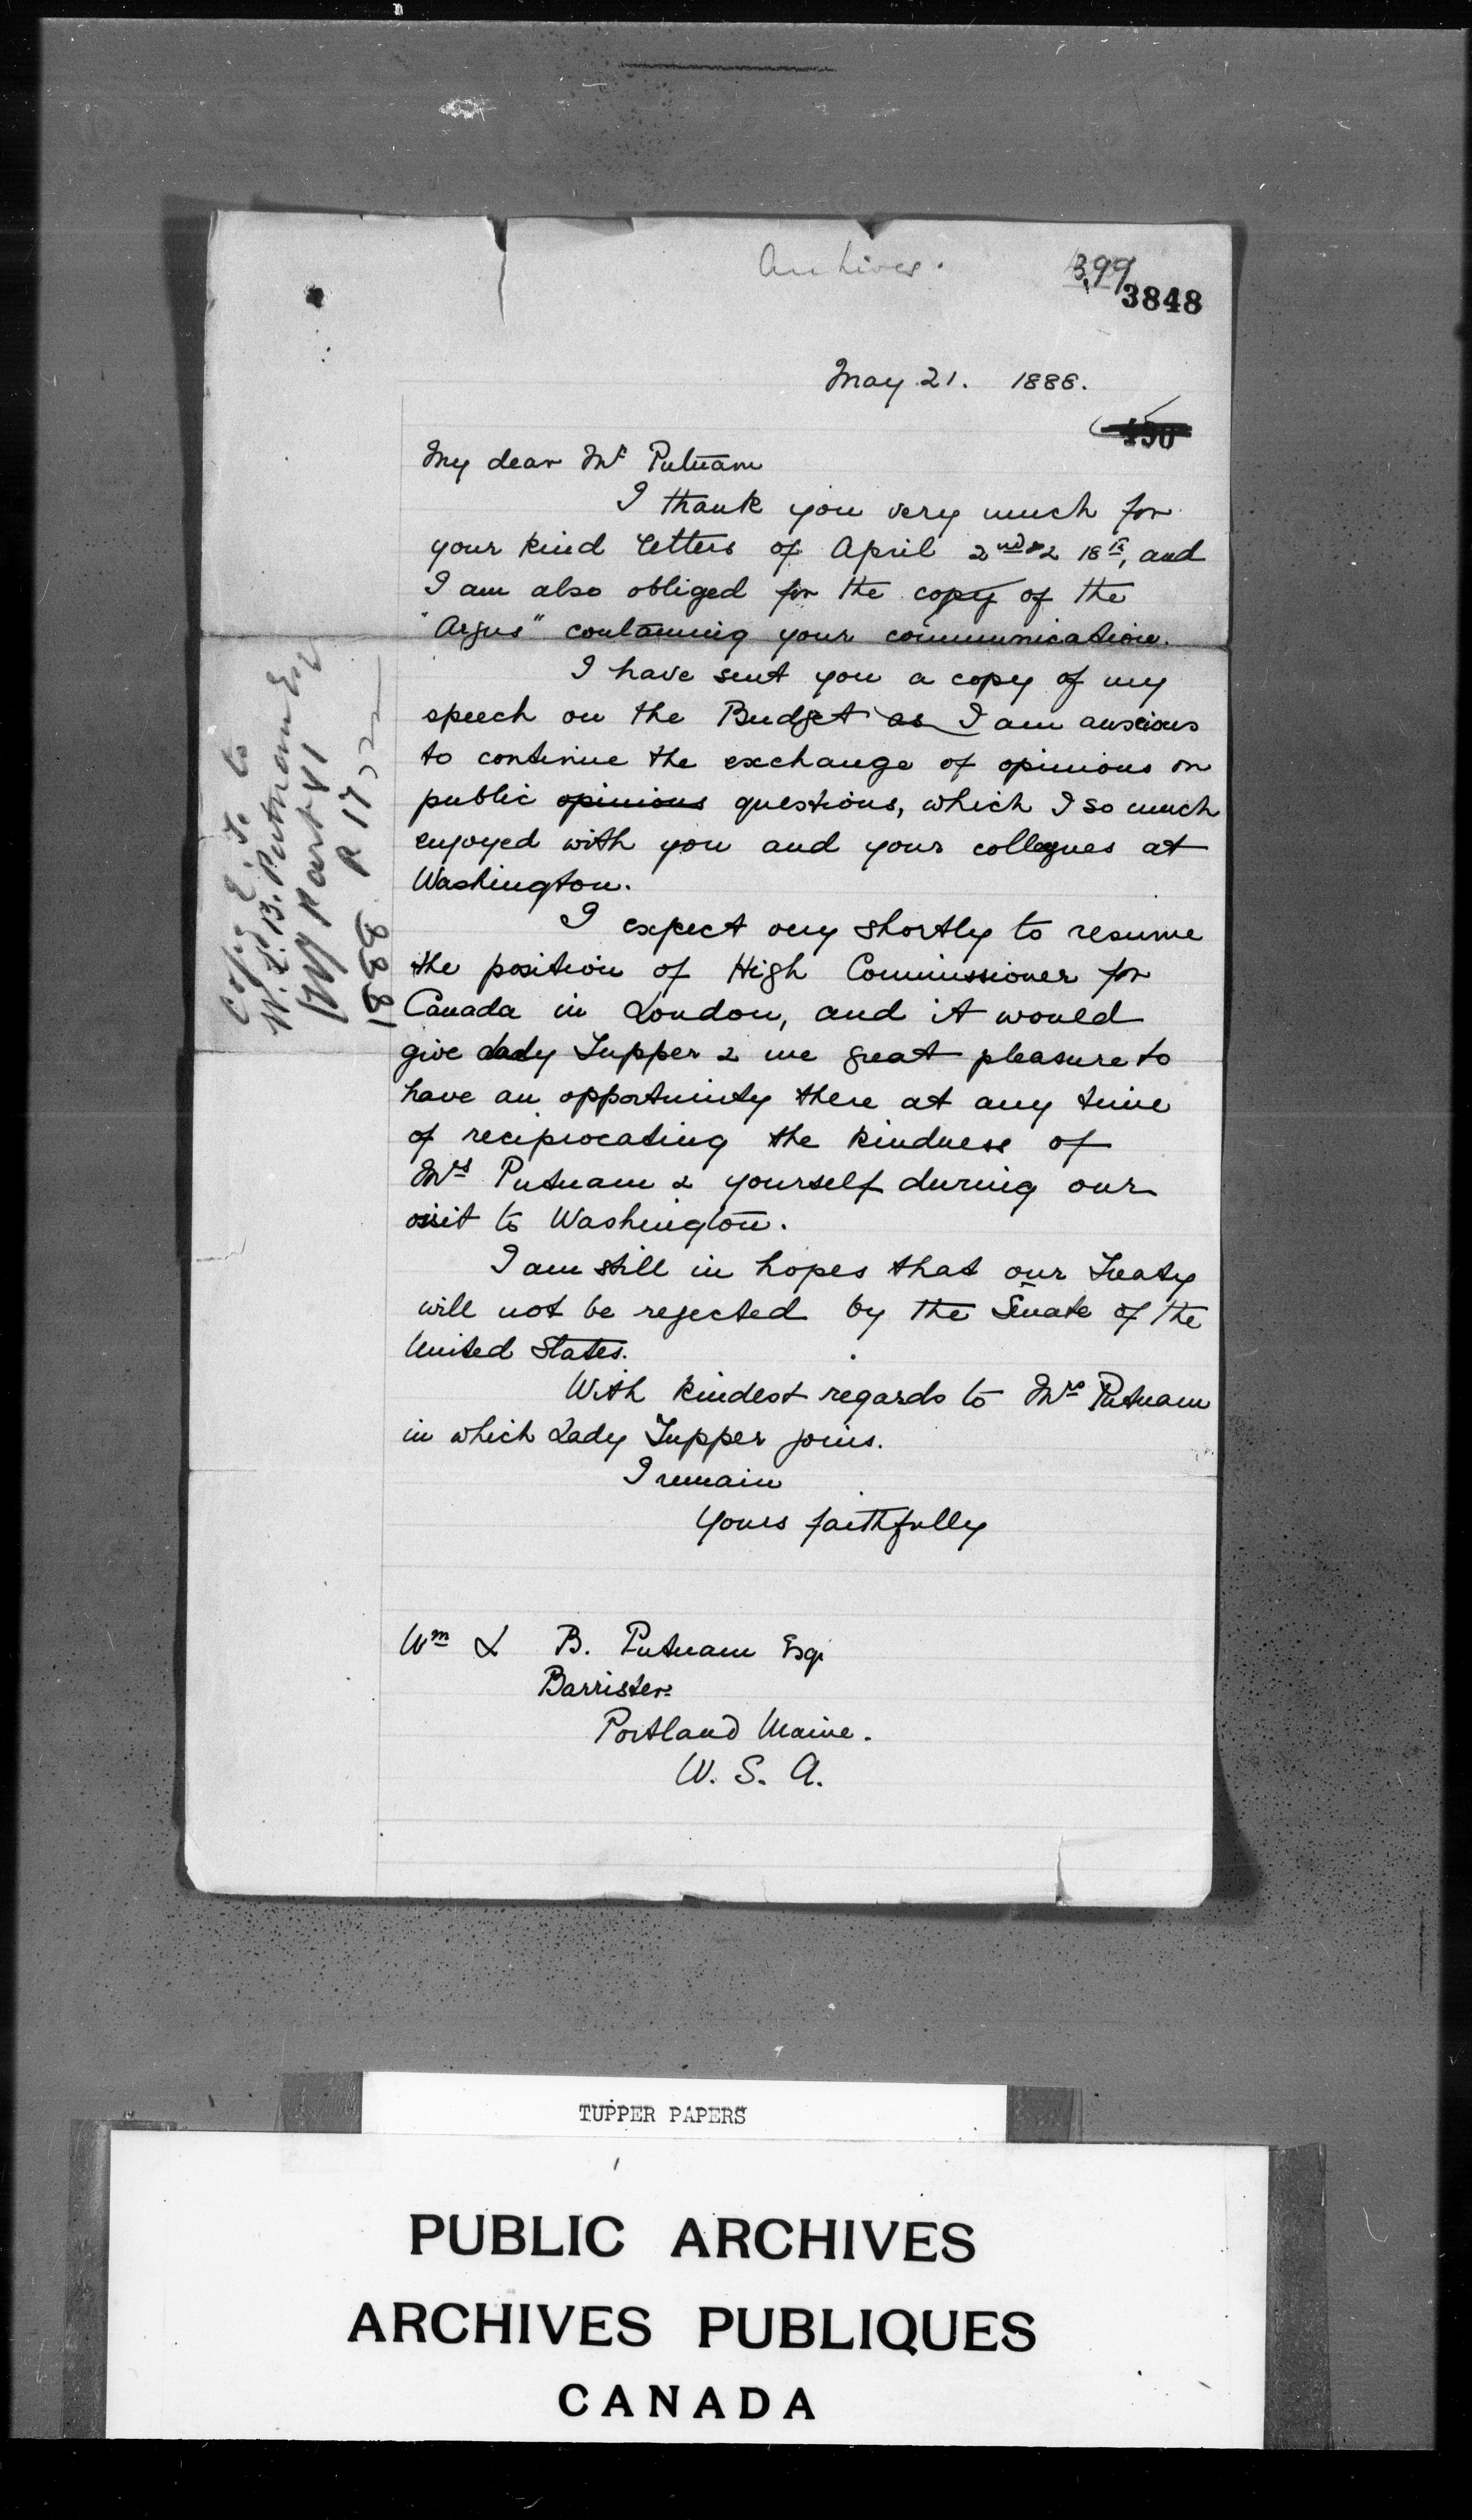 Archives.
399
3848
May 21. 1888.
My dear Mr Putnam
I thank you very much for
your kind letters of April 2nd & 18th, and
I am also obliged for the copy of the
"Argus" containing your communication.
I have sent you a copy of my
speech on the Budget as I am anxious
to continue the exchange of opinions on
public opinions questions, which I so much
enjoyed with you and your collegues at
Washington.
I expect very shortly to resume
the position of High Commissioner for
Canada in London, and it would
give Lady Tupper & me great pleasure to
have an opportunity there at any time
of reciprocating the kindness of
Mrs Putnam & yourself during our
visit to Washington.
I am still in hopes that our Treaty
will not be rejected by the Senate of the
United States.
With kindest regards to Mrs Putnam
in which Lady Tupper joins.
I remain
Yours faithfully
Wm L B. Putnam Esq.
Barrister
Portland Maine.
U. S. A.
Copy to
W. L. B. Putnam Esq
1888
TUPPER PAPERS
PUBLIC ARCHIVES
ARCHIVES PUBLIQUES
CANADA